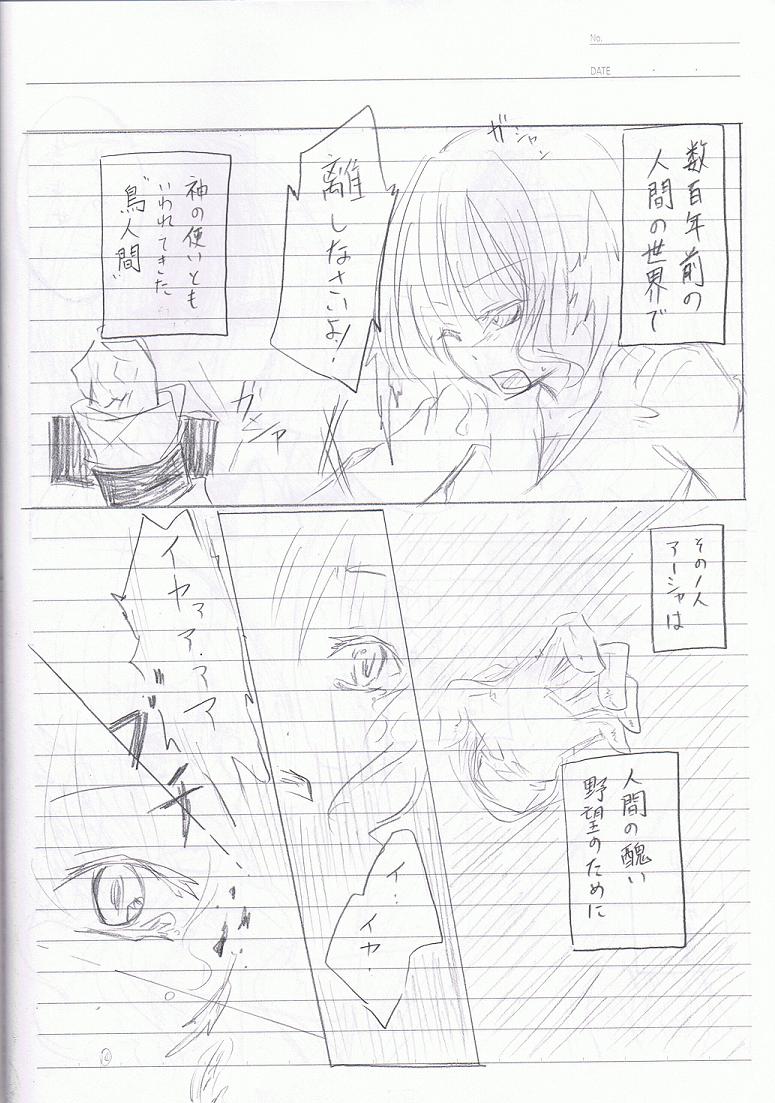 No.
DATE
数百年前の
人間の世界で
ガシャン
離しなさいよ!
神の使いとも
いわれてきた
"鳥人間"
ガシャ
その1人
アーシャは
人間の醜い
野望のために
イ…イヤ…
イヤァァァァ
ブチ